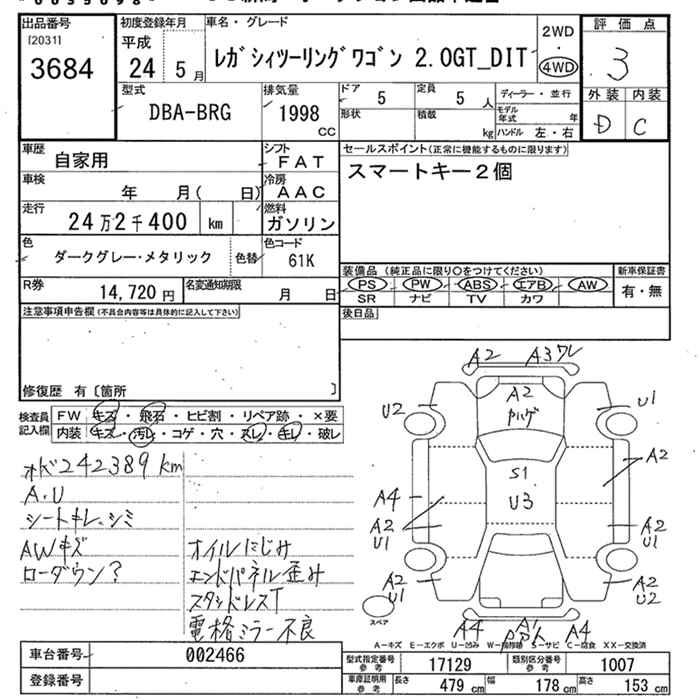 出品番号
[2031]
3684
初度登録年月
平成
24 5月
車名・グレード
レガシィツーリングワゴン 2.0GT_DIT
2WD
・
4WD
評価点
3
外装 内装
D C
型式
DBA-BRG
排気量
1998 CC
ドア 5
定員 5 人
形状
積載 kg
ディーラー・並行
モデル年式 年
ハンドル 左・右
車歴
自家用
シフト
FAT
車検
年 月( 日)
冷房
AAC
走行
24万2千400 km
燃料
ガソリン
色
ダークグレー・メタリック
色替
色コード
61K
R券
14,720 円
名変通知期限 月 日
セールスポイント(正常に機能するものに限ります)
スマートキー2個
装備品 (純正品に限り○をつけてください)
PS PW ABS エアB AW
SR ナビ TV カワ
新車保証書
有・無
後日品
注意事項申告欄(不具合内容等は具体的に記入して下さい)
修復歴 有〔箇所 〕
検査員記入欄
FW キズ・飛石・ヒビ割・リペア跡・×要
内装 キズ・汚レ・コゲ・穴・スレ・キレ・破レ
オド242389km
A.U
シートキレ、シミ
AWキズ
ローダウン?
オイルにじみ
エンドパネル歪み
スタッドレスT
電格ミラー不良
A2 A3ワレ
U2 A2 U1
ハゲ
A2
S1
U3
A4
A2 U1
A2 U1
A2 U1
A2 U2
スペア
A4 A1 A4
A-キズ E-エクボ U-凹み W-補修跡 S-サビ C-腐食 XX-交換済
車台番号 002466
登録番号
型式指定番号 参考 17129
類別区分番号 参考 1007
車庫証明用 参考 長さ 479 cm 幅 178 cm 高さ 153 cm